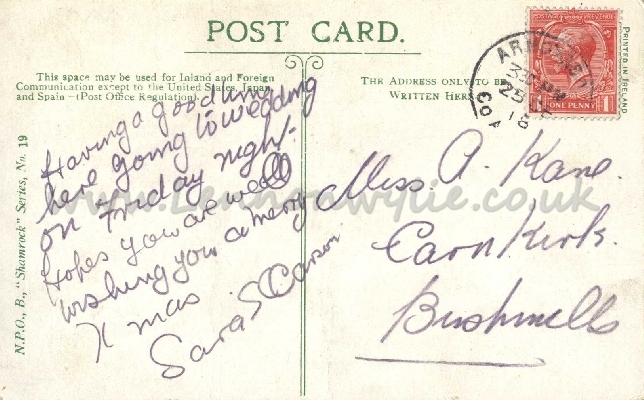 POST CARD.
This space may be used for Inland and Foreign
Communication except to the United States, Japan,
and Spain—(Post Office Regulation).
THE ADDRESS ONLY TO BE
WRITTEN HERE
POSTAGE REVENUE
ONE PENNY
PRINTED IN IRELAND
N.P.O., B., "Shamrock" Series, No. 19
Having a good time
here going to wedding
on Friday night.
Hopes you are well
wishing you a merry
X mas.
Sara S Carson
Miss A. Kane.
Carnkirk.
Bushmills
www.Lennonwylie.co.uk